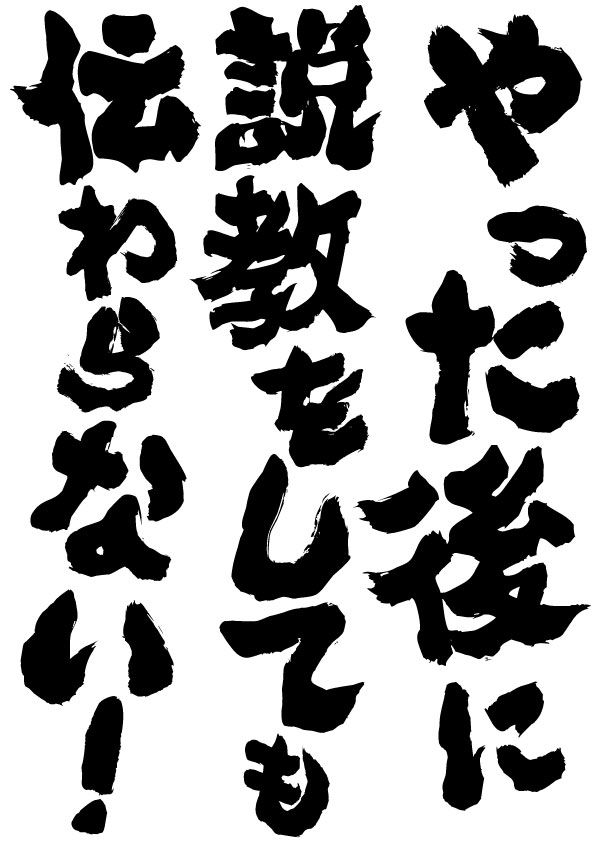 やった後に
説教をしても
伝わらない!